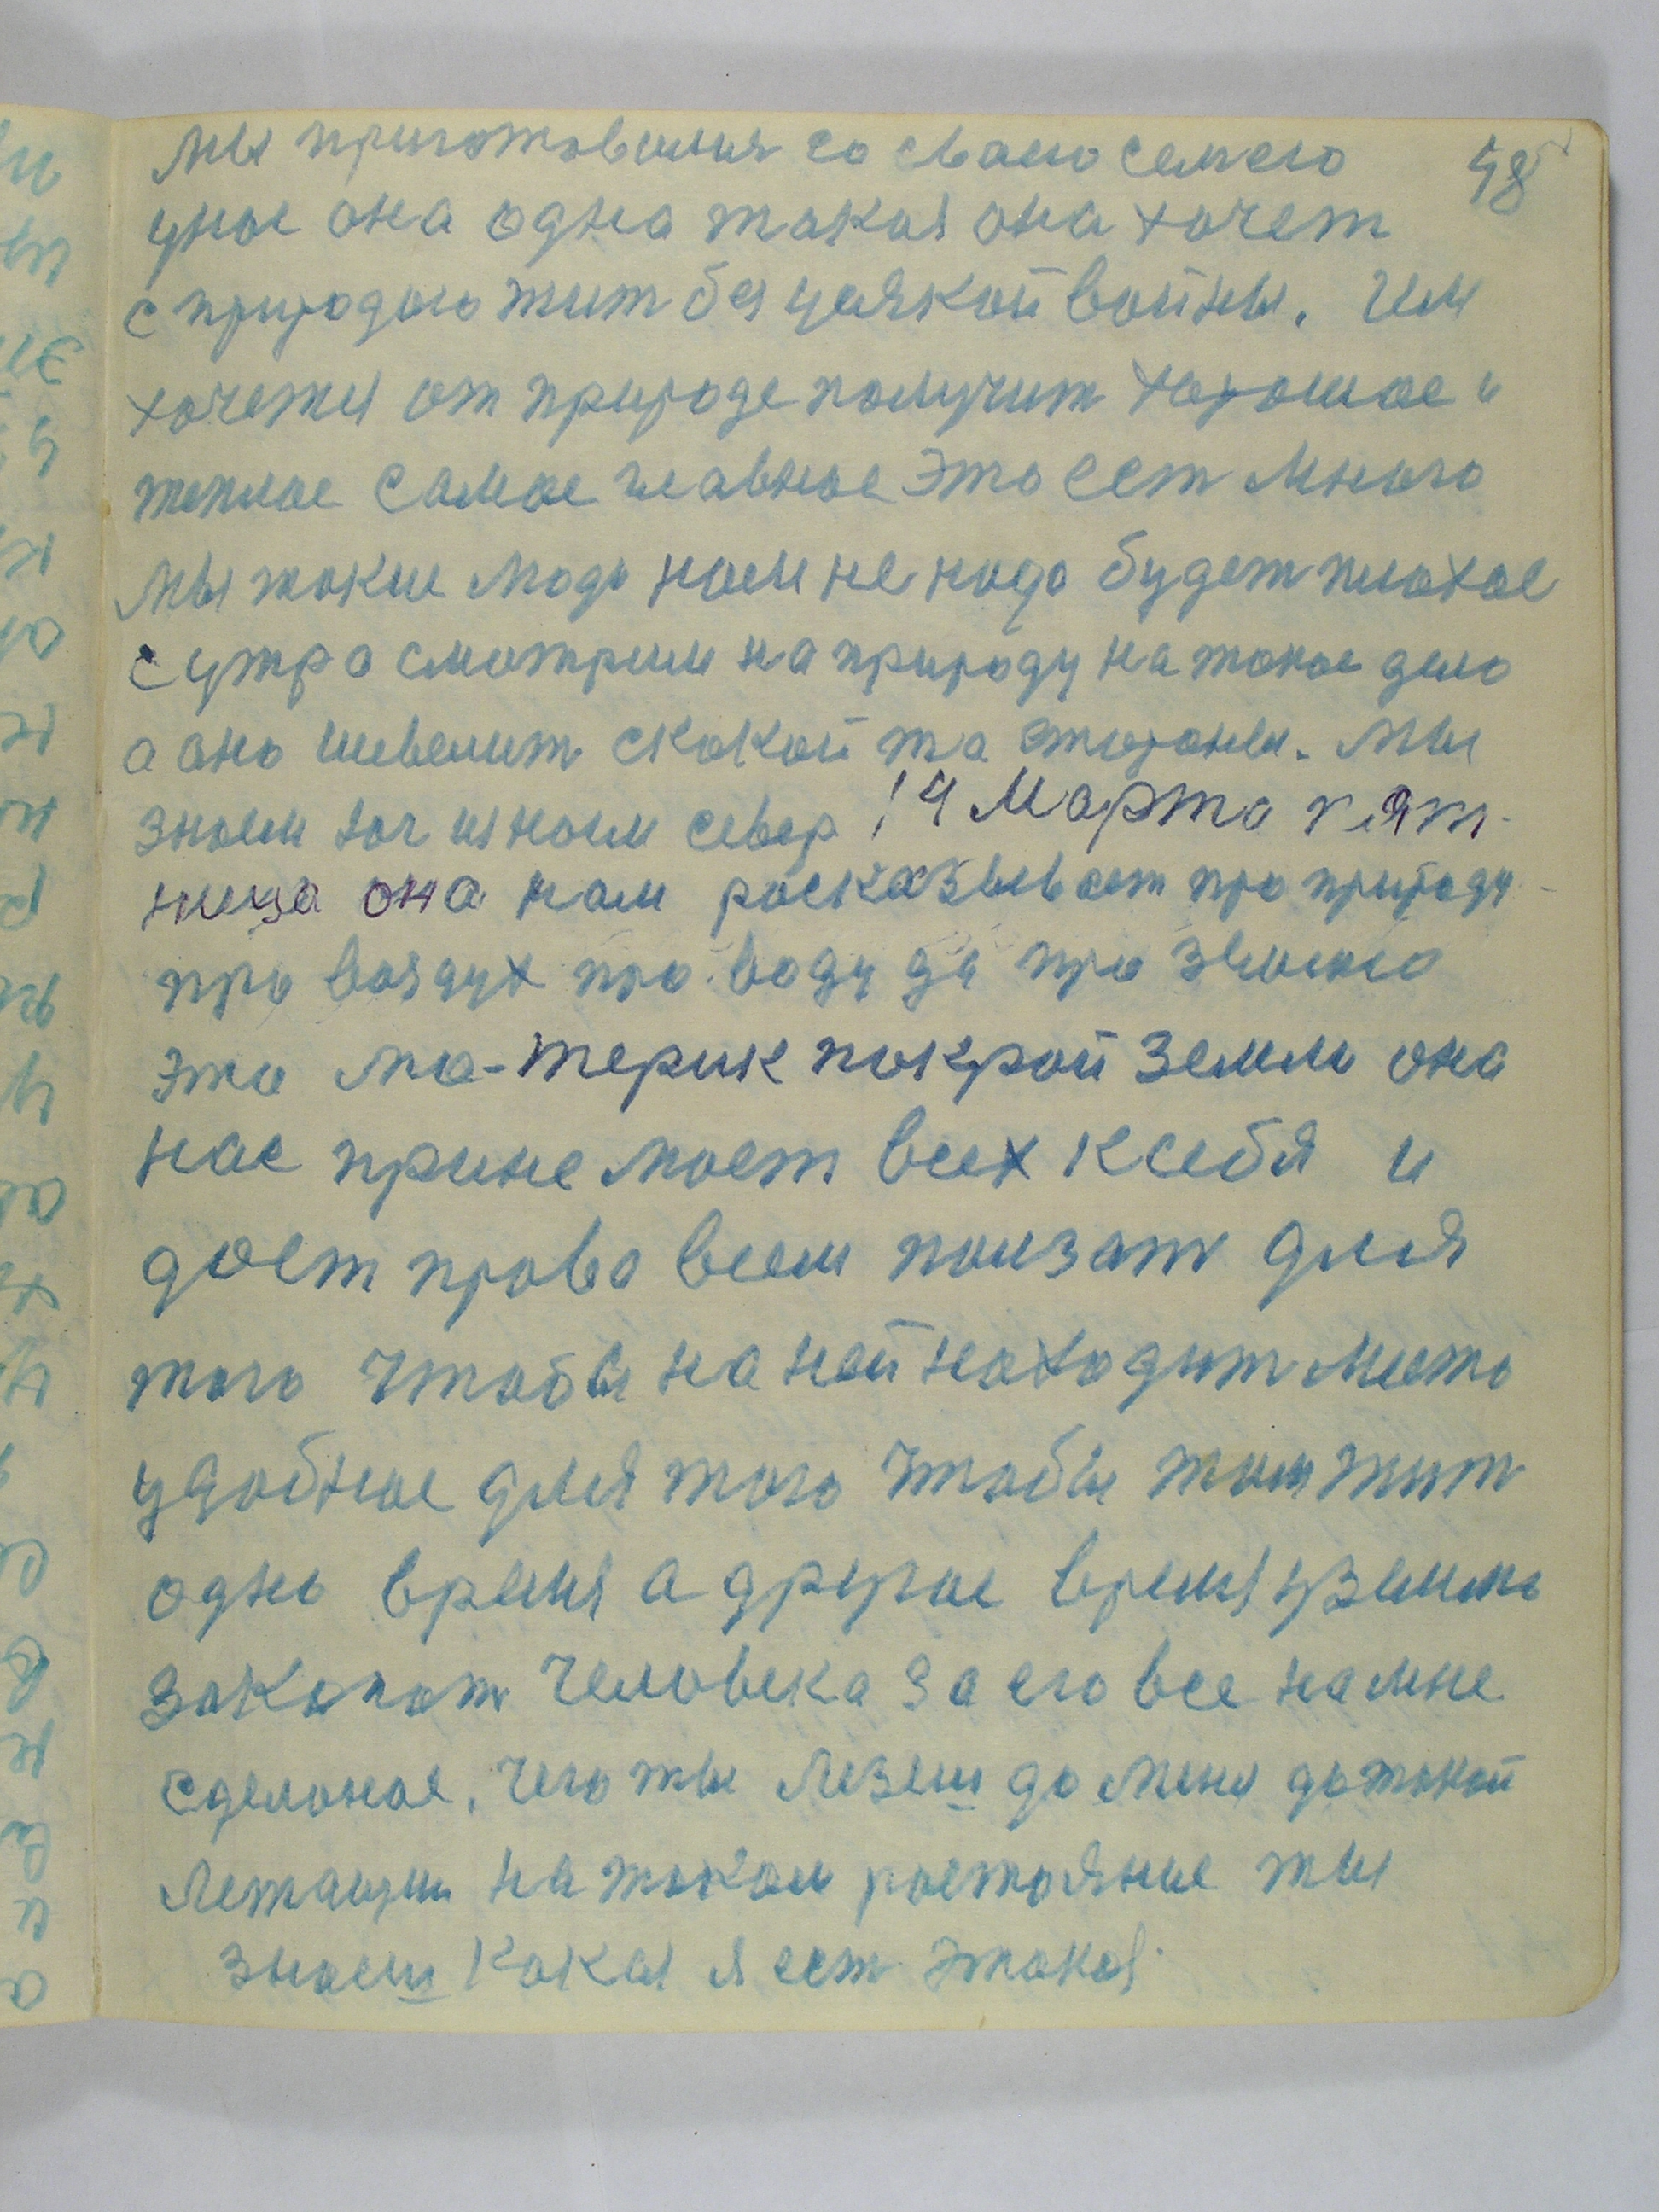 48
мы приготовился со своею семею
уное она одна такая она хочет
с природою жит без усякой войны. Им
хочется от природе получит хорошое и
теплое самое главное это ест много
мы такие люди нам не надо будет плохое
с утра смотрим на природу на тоное дело
а оно шевелит скокой та стороны. Мы
знаем хоч из ноем север 14 Марта пят-
ница она нам росказывает про природу
про воздух про воду да про землю
это ма-терик покрой земли она
нас прине мает всех ксебя и
дает право всем ползат для
того чтобы на ней находит место
удобное для того чтобы там жит
одно время а другое время уземлю
закопат человека за его все на мне
сделоное. чего ты лезеш до мене до такой
летащи на таком ростояние ты
знаеш какая я ест этакая